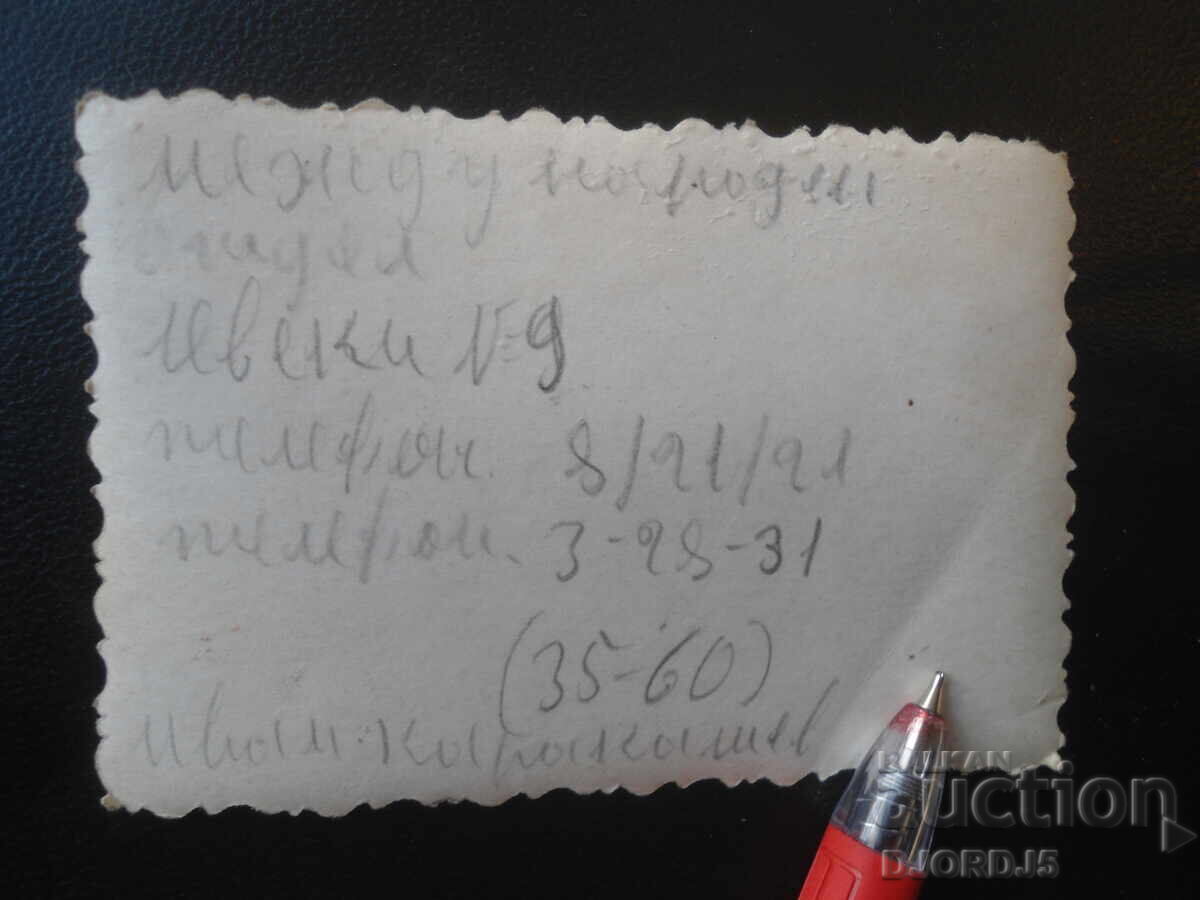 между народен
отдел
Цвеки №9
телефон. 8/21/21
телефон. 3-28-31
(35-60)
Иван. каракашев
BALKAN
auction
DJORDJ5